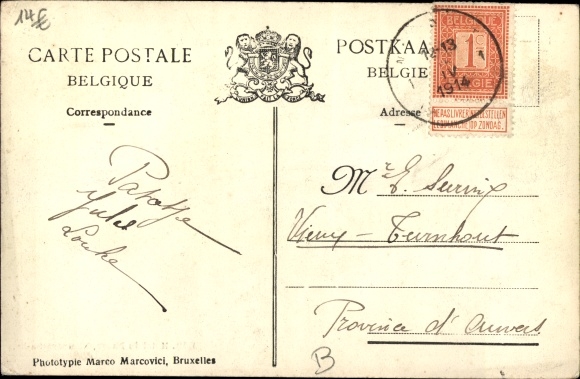 CARTE POSTALE
BELGIQUE
Correspondance
POSTKAA
BELGIE
Adresse
BELGIQUE
1c
BELGIE
12-13
1 1
IV
1914
NE PAS LIVRER
NIET BESTELLEN
LE DIMANCHE
OP ZONDAG.
Mr E.
Vieux-Turnhout
Province d'Anvers
B
Jules
Louka
Phototypie Marco Marcovici, Bruxelles